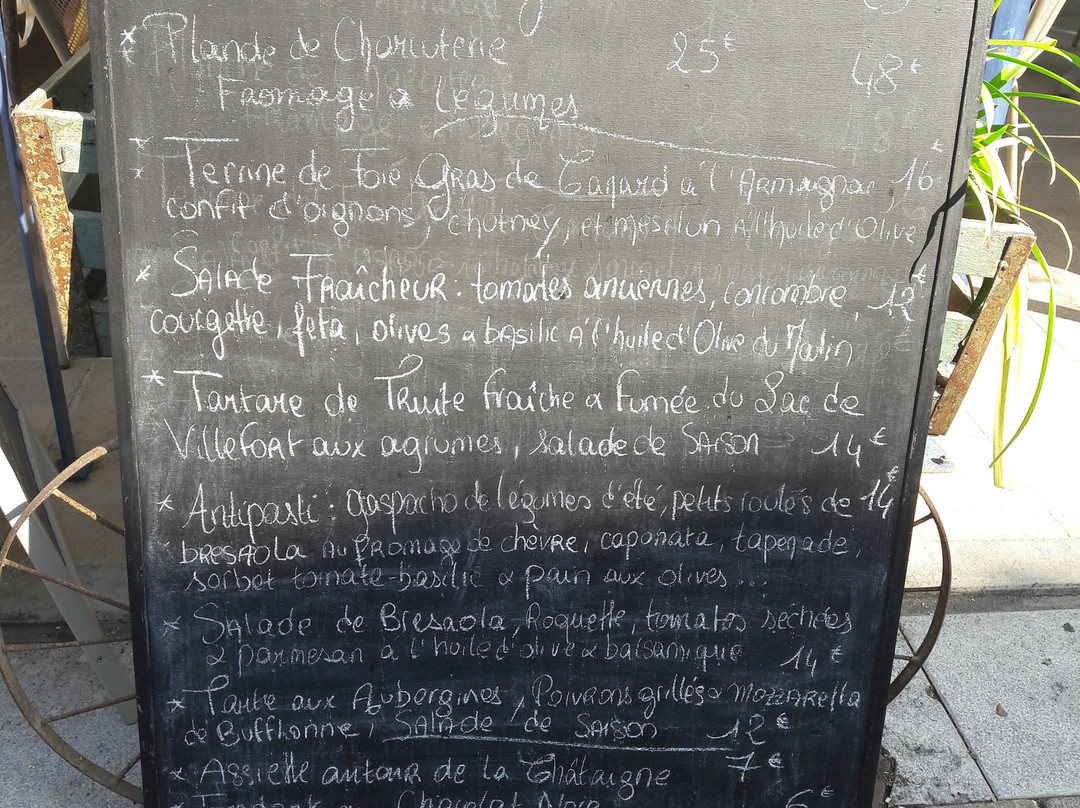 * Planche de Charcuterie 25€ 48€
Fromage & légumes
* Terrine de Foie Gras de Canard à l'Armagnac, 16€
confit d'oignons, chutney, et mesclun à l'huile d'Olive
* Salade Fraîcheur : tomates anciennes, concombre, 12€
courgette, feta, olives & basilic à l'huile d'Olive du Moulin
* Tartare de Truite fraîche & fumée du Lac de
Villefort aux agrumes, salade de Saison 14€
* Antipasti : gaspacho de légumes d'été, petits roulés de 14€
bresaola au fromage de chèvre, caponata, tapenade,
sorbet tomate-basilic & pain aux olives...
* Salade de Bresaola, Roquette, tomates séchées
& parmesan à l'huile d'olive & balsamique 14€
* Tarte aux Aubergines, Poivrons grillés & mozzarella
de Bufflonne, Salade de Saison 12€
* Assiette autour de la Châtaigne 7€
* Chocolat Noir 6€